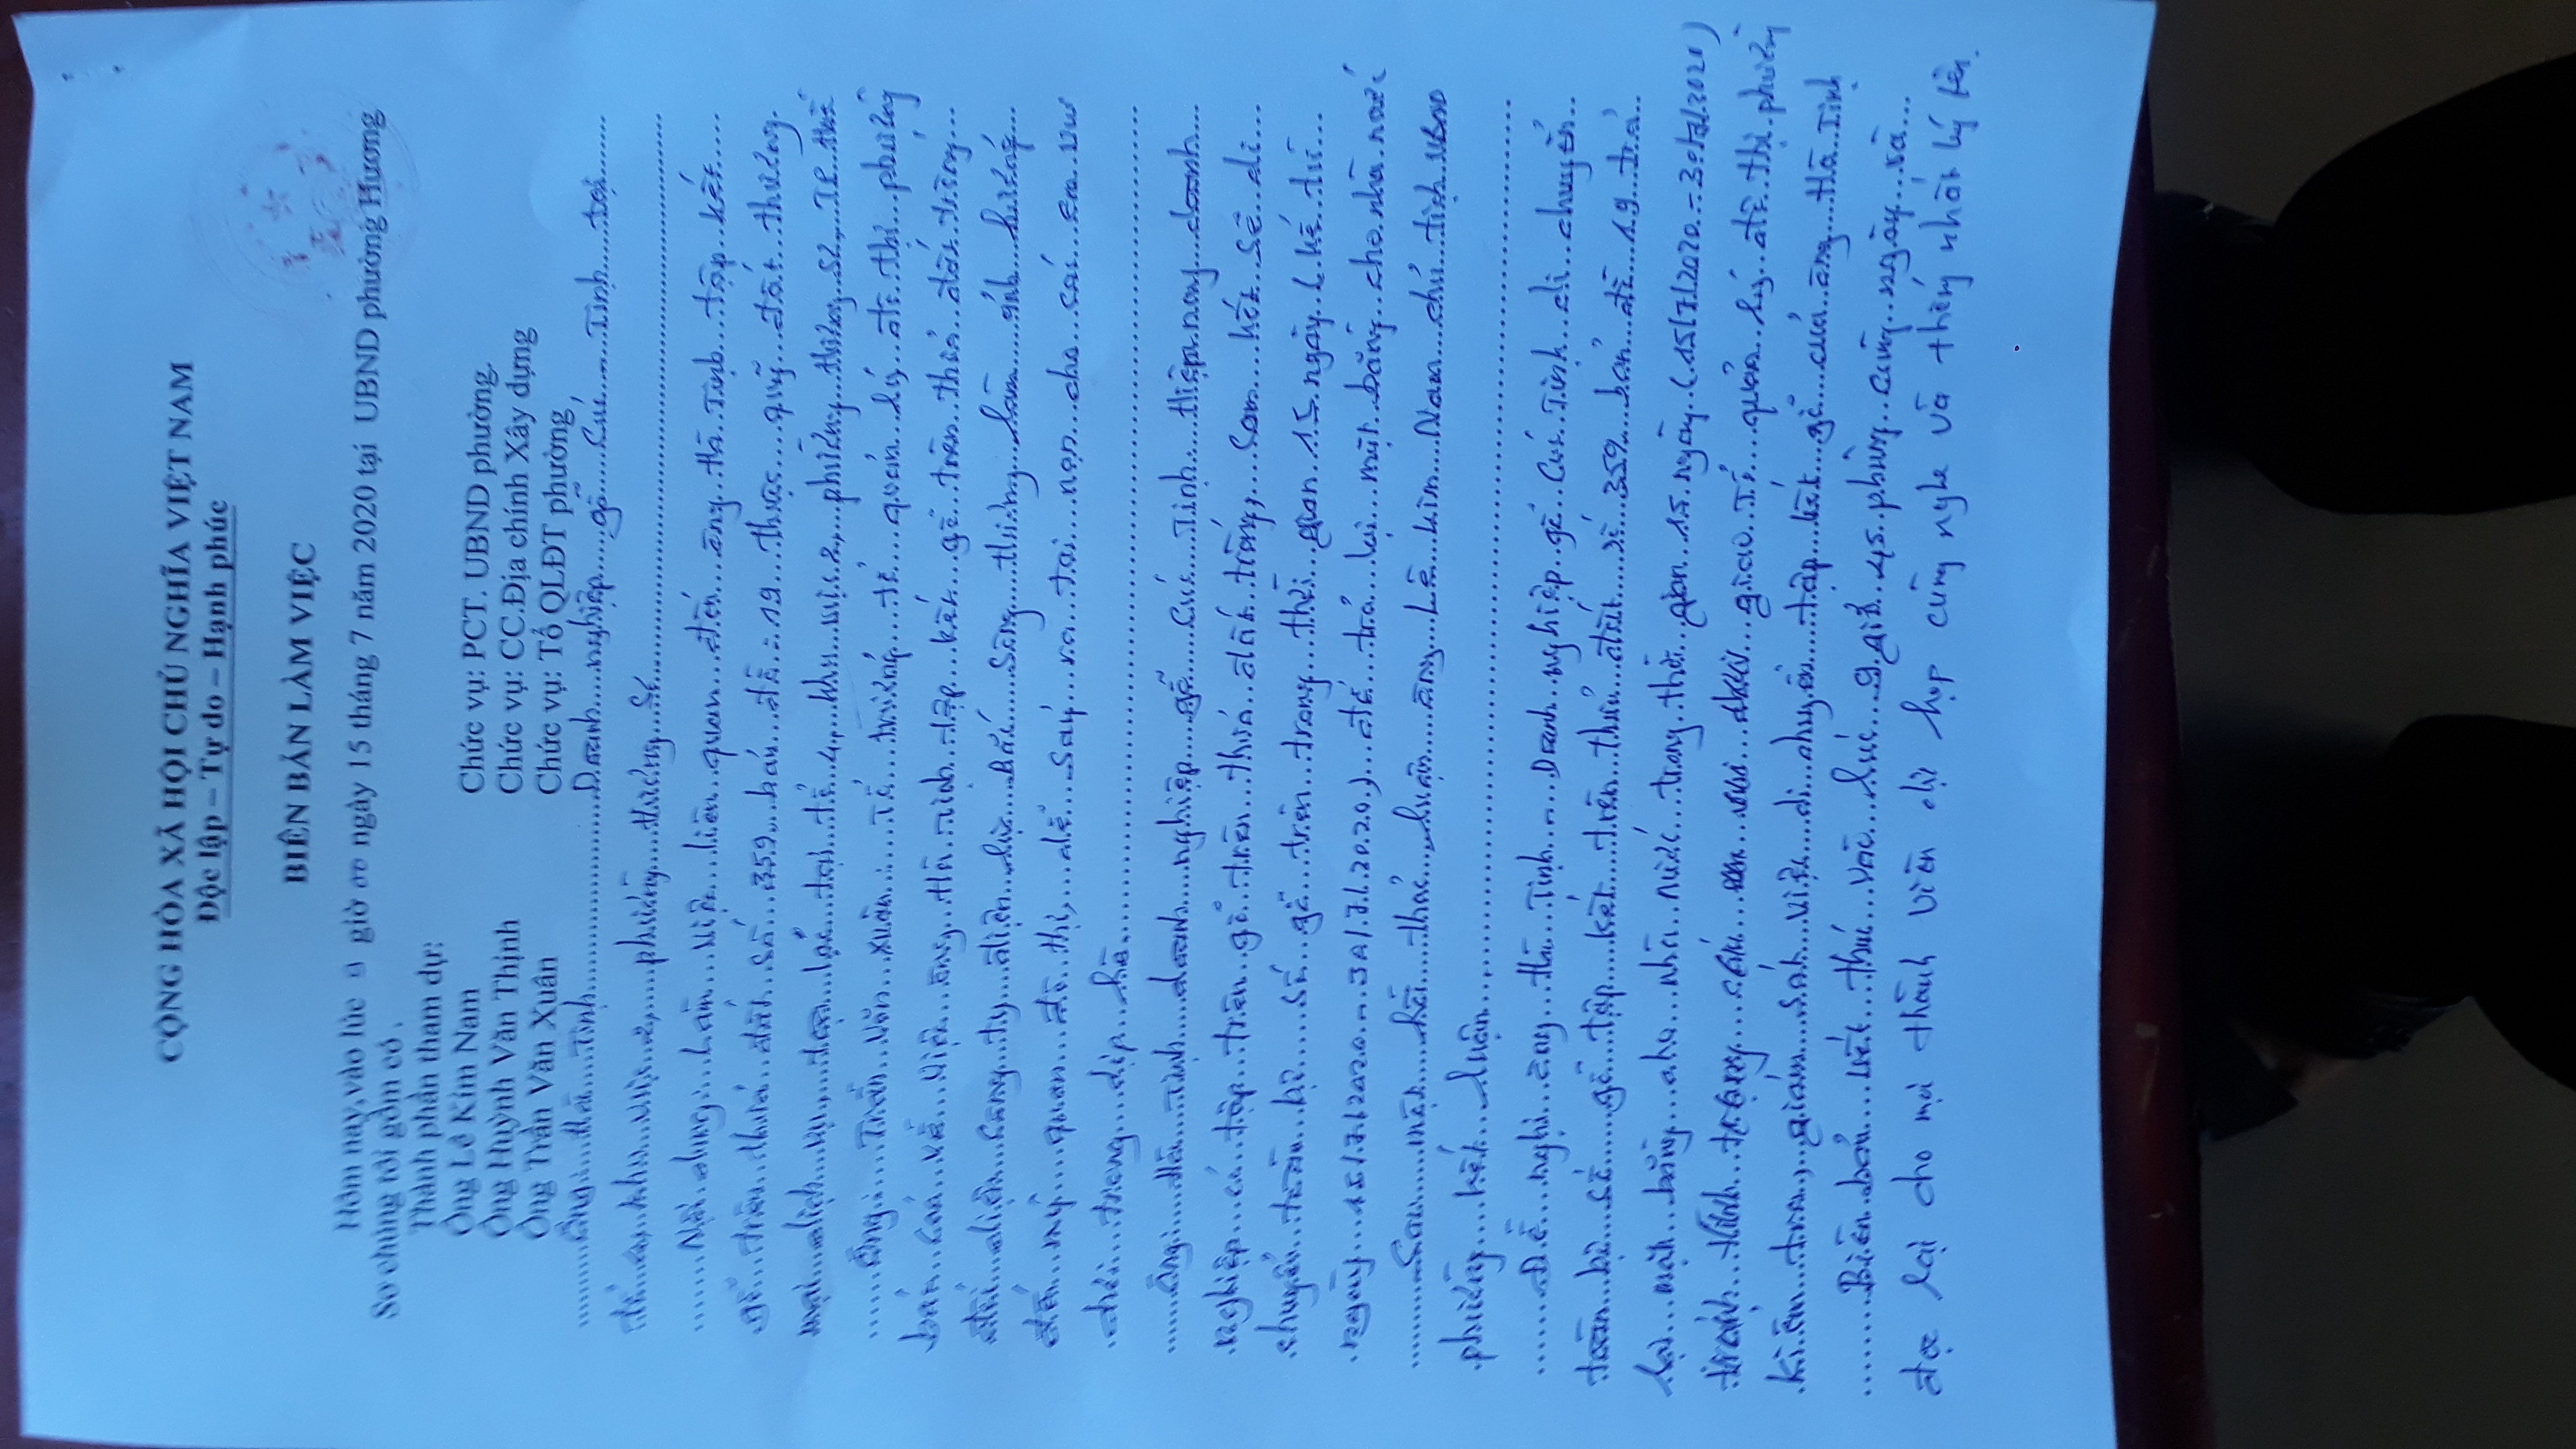 CỘNG HÒA XÃ HỘI CHỦ NGHĨA VIỆT NAM
Độc lập – Tự do – Hạnh phúc
BIÊN BẢN LÀM VIỆC
Hôm nay, vào lúc 9 giờ 00 ngày 15 tháng 7 năm 2020 tại UBND phường Hương
Sơ chúng tôi gồm có.
Thành phần tham dự:
Ông Lê Kim Nam Chức vụ: PCT. UBND phường.
Ông Huỳnh Văn Thịnh Chức vụ: CC.Địa chính Xây dựng
Ông Trần Văn Xuân Chức vụ: Tổ QLĐT phường
Ông: Hà Tịnh Doanh nghiệp gỗ Cúc Tịnh tại
tổ 4, khu vực 2, phường Hương Sơ
Nội dung: Làm việc liên quan đến ông Hà Tịnh tập kết
gỗ trên thửa đất số 359 bản đồ: 19 thuộc quỹ đất thương
mại dịch vụ tọa lạc tại tổ 4, khu vực 2, phường Hương Sơ, TP Huế
Ông: Trần Văn Xuân: Tổ trưởng tổ quản lý đô thị phường
báo cáo về việc ông Hà Tịnh tập kết gỗ trên thửa đất trống
đối diện công ty điện lực bắc sông Hương làm ảnh hưởng
đến mỹ quan đô thị, dễ xảy ra tai nạn cho các em vui
chơi trong dịp hè.
Ông: Hà Tịnh doanh nghiệp gỗ Cúc Tịnh. Hiện nay doanh
nghiệp có tập trên gỗ trên thửa đất trống, cam kết sẽ di
chuyển toàn bộ số gỗ trên trong thời gian 15 ngày (kể từ
ngày 15/7/2020 - 30/7/2020) để trả lại mặt bằng cho nhà nước
Sau một hồi thảo luận ông Lê Kim Nam chủ tịch UBND
phường kết luận.
Đề nghị ông Hà Tịnh - Doanh nghiệp gỗ Cúc Tịnh di chuyển
toàn bộ số gỗ tập kết trên thửa đất số 359 bản đồ 19 trả
lại mặt bằng cho nhà nước trong thời gian 15 ngày (15/7/2020 - 30/7/2020)
tránh tình trạng giao Tổ quản lý đô thị phường
kiểm tra, giám sát việc di chuyển tập kết gỗ của ông Hà Tịnh
Biên bản kết thúc vào lúc 9 giờ 45 phút cùng ngày và
đọc lại cho mọi thành viên dự họp cùng nghe và thống nhất ký tên.